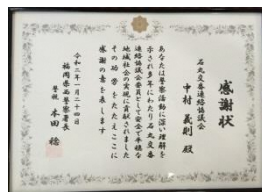 感謝状
石丸交番連絡協議会
中村義則殿
あなたは警察活動に深い理解を
示され多年にわたり石丸交番
連絡協議会委員として安全で平穏な
地域社会の実現に貢献されました
その功労をたたえここに
感謝の意を表します
令和三年一月二十四日
福岡県西警察署長
警視 本田 稔